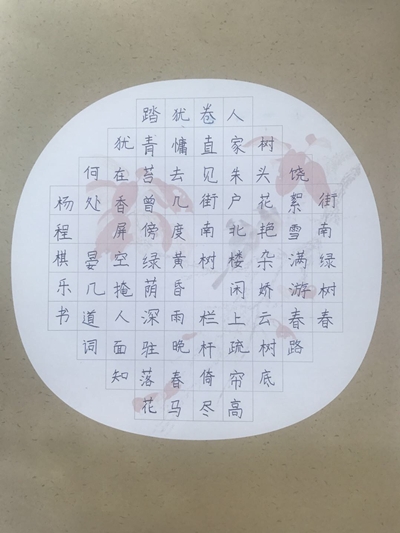 街南绿树春
饶絮雪满游春路
树头花艳杂娇云树底
人家朱户北楼闲上疏帘高
卷直见街南树 栏杆倚尽
犹慵去几度黄昏雨晚春马
踏青苔曾傍绿荫深驻落花
犹在香屏空掩人面知
何处 晏几道词
杨程棋乐书